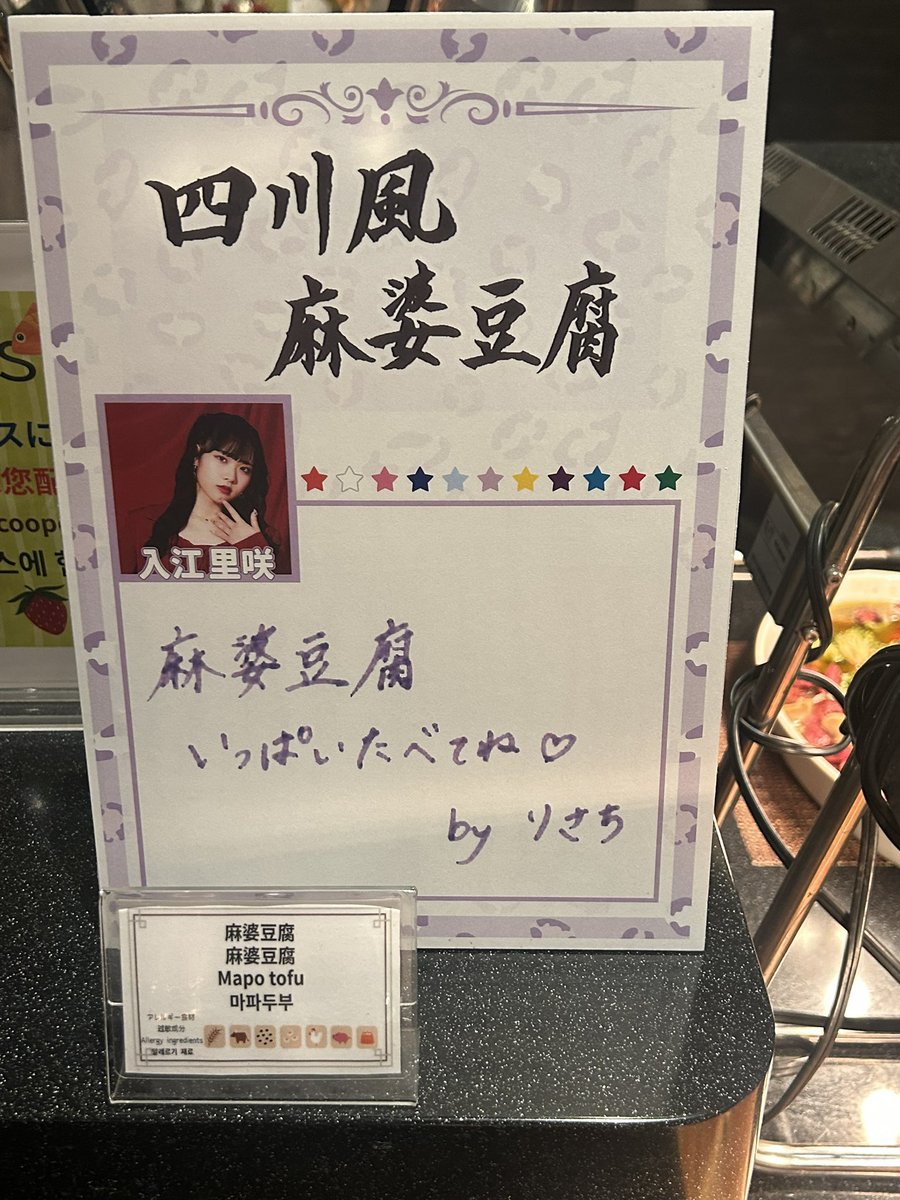 四川風
麻婆豆腐
入江里咲
麻婆豆腐
いっぱいたべてね♡
by りさち
麻婆豆腐
麻婆豆腐
Mapo tofu
마파두부
アレルギー食材
过敏成分
Allergy ingredients
알레르기 재료
S
スに
您配
coope
스에